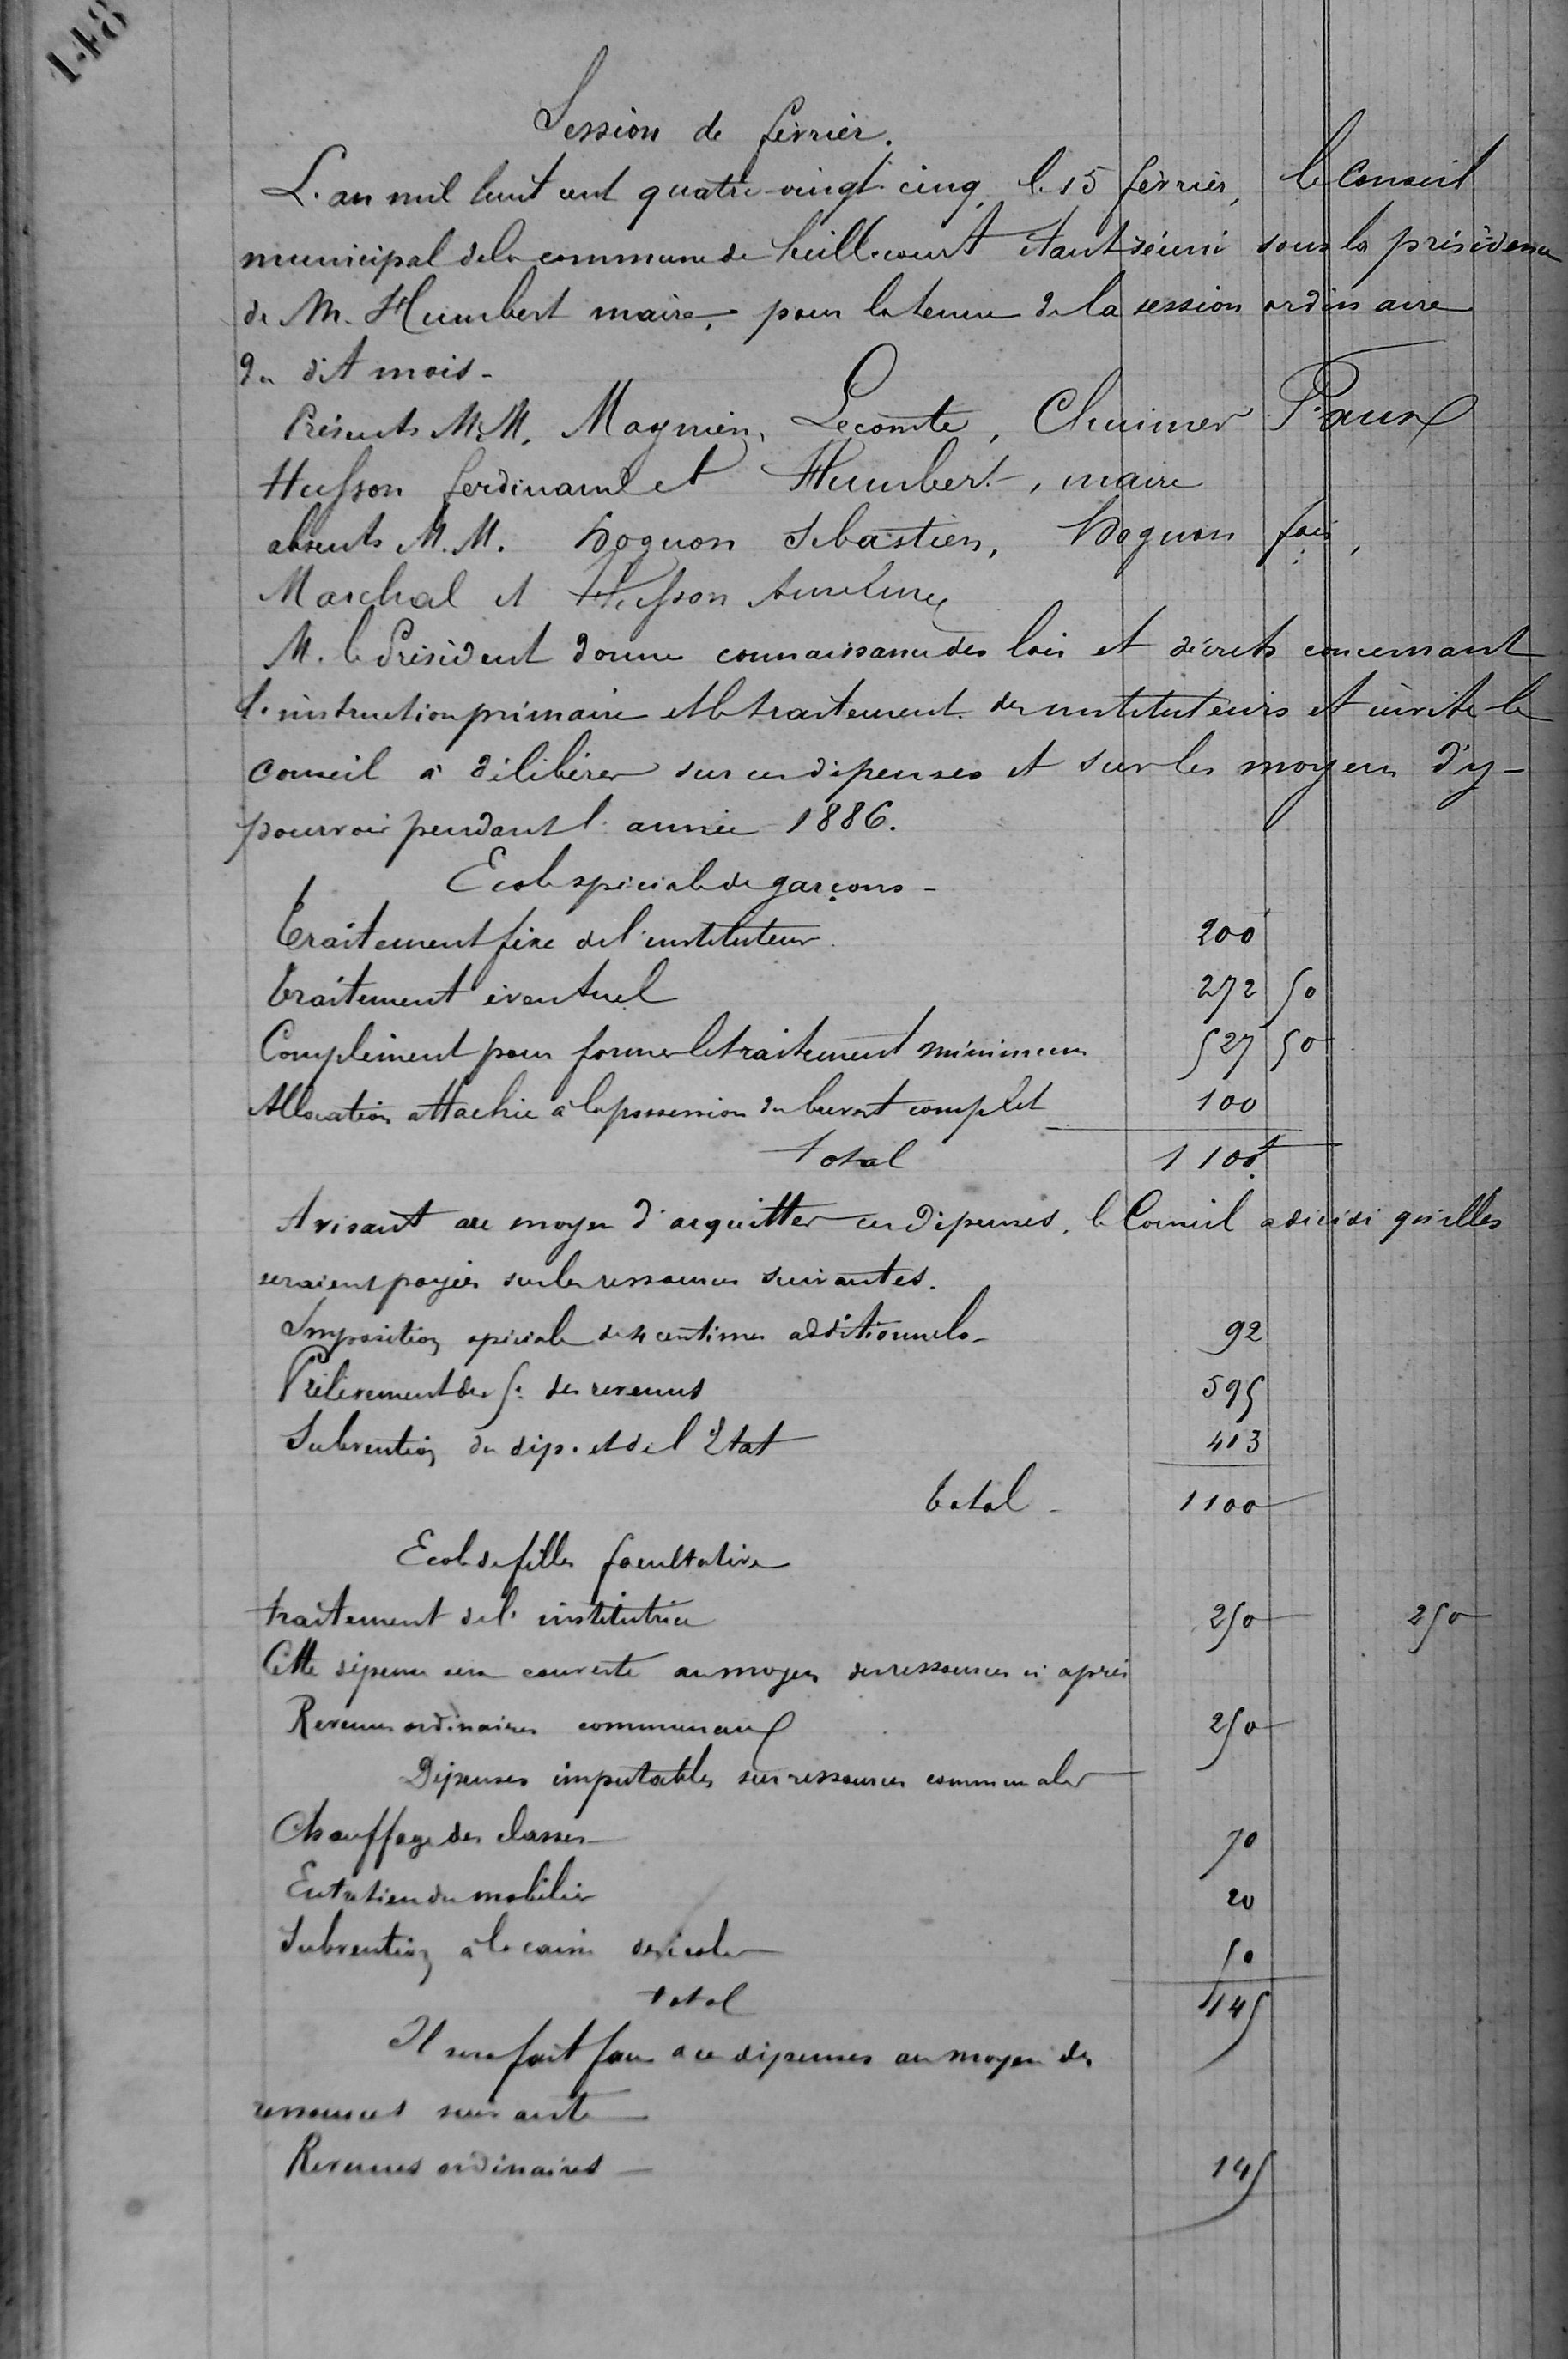 148
Session de février.
L'an mil huit cent quatre-vingt-cinq, le 15 février, le Conseil
municipal de la commune de heillecourt étant réuni sous la présidence
de M. Humbert maire, pour la tenue de la session ordinaire
du dit mois -
Présents M.M. Magnien, Lecomte, Chuimer Paux
Husson ferdinand et Humbert, maire
absents M.M. hognon Sébastien, hognon
Marchal et Husson
M. le Président donne connaissance des lois et décrets concernant
l'instruction primaire et le traitement des instituteurs et invite le
Conseil à délibérer sur ces dépenses et sur les moyens d'y -
pourvoir pendant l'année 1886.
Ecole spéciale de garçons -
Traitement fixe de l'instituteur 200
traitement éventuel 272 50
Complément pour former le traitement minimum 527 50
Allocation attachée à la possession du brevet complet 100
total 1100f
Avisant au moyen d'acquitter ces dépenses, le Conseil a décidé qu'elles
seraient payées sur les ressources suivantes.
Imposition spéciale de 4 centimes additionnels - 92
Prélèvement du 5e des revenus 595
Subvention du dép. et de l'Etat 413
total - 1100
Ecole de filles facultative
traitement de l'institutrice 250 250
Cette dépense sera couverte au moyen des ressources ci après
Revenus ordinaires communaux 250
Dépenses imputables sur ressources communales
Chauffage des classes 70
Entretien du mobilier 20
Subvention à la caisse des écoles 50
total 145
Il sera fait face à ces dépenses au moyen des
ressources suivantes
Revenus ordinaires - 145